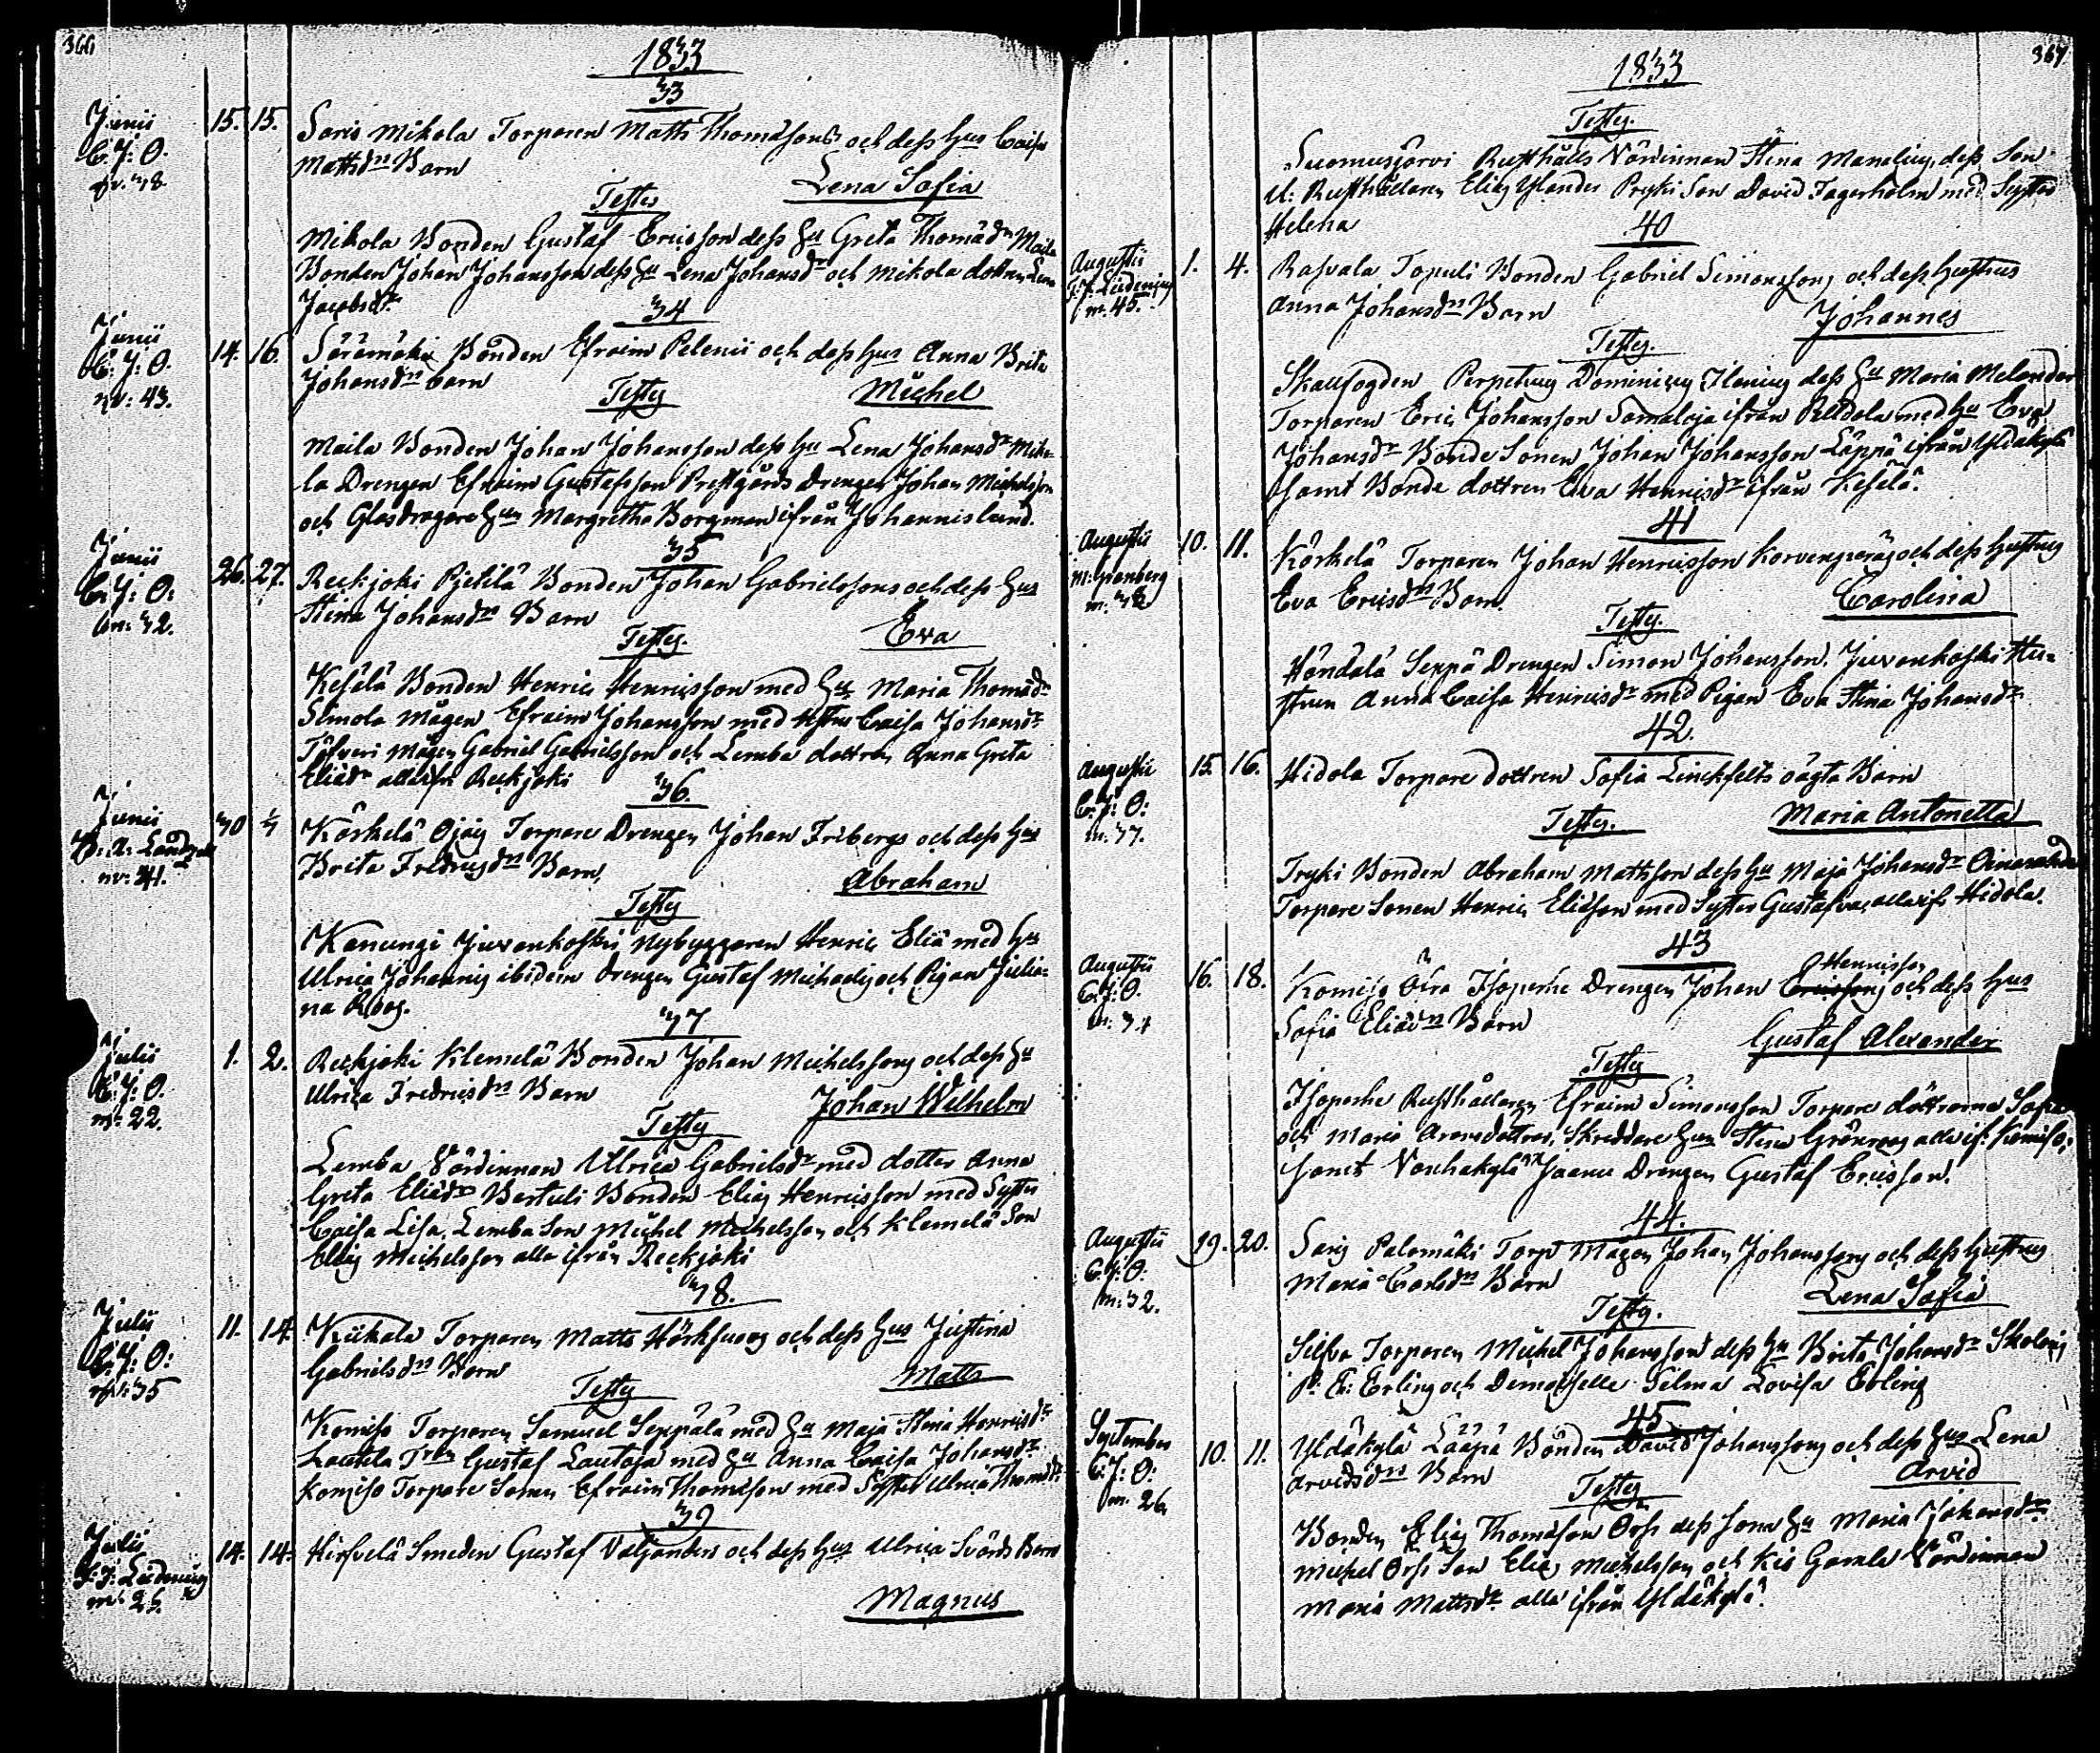 366
1833
33
Junii
C. J. O.
15. 15. Saris Mikola Torparen Matts Thomassons och dess Hus Caisa
Mattsdrs Barn
Lena Sofia
Testes
Mikola Bonden Gustaf Ericsson dess Hu Greta Thomædr Maila
Bonden Johan Johansson dess Hu Lena Johansdr och Mikola dottren Lena
Jacobsdr
34
Junii
C. J. O.
nr: 43.
14. 16. Särämäki Bonden Efraim Pelenii och dess Hus Anna Brita
Johansdrs barn
Michel
Testes
Maila Bonden Johan Johansson dess Hu Lena Johansdr Miko-
la Drengen Efraim Gustafsson Prestgårds Drengen Johan Michelsson
och Glasdragare Hun Margretha Borgman ifrån Johannislund.
35
Junii
C. J: O:
nr: 32.
26. 27. Reckjoki Pjetilä Bonden Johan Gabrielssons och dess Hus
Stina Johansdrs Barn
Eva
Testes.
Kesälä Bonden Henric Henricsson med Hu Maria Thomædr
Simola Mågen Efraim Johansson med Hustru Caisa Johansdr
Mågen Gabriel Gabrielsson och Lemba dottren Anna Greta
Eliædr alla ifr Reckjoki
36.
Junii
nr: 41.
30 Körkelä Ojas Torpare Drengen Johan Fribergs och dess Hus
Brita Fredricsdrs Barn
Abraham
Testes
Kanungi Juvankoski Nybyggaren Henric Eliæ med Hu
Ulrica Johannis ibidem drengen Gustaf Michaelis och Pigan Julia-
na Roos.
37
Julii
C. J: O.
nr: 22.
1. 2. Reckjoki Klemelä Bonden Johan Michelssons och dess Hu
Ulrica Fredricsdrs Barn
Johan Wilhelm
Testes
Lemba Värdinnan Ulrica Gabrielsdr med dotter Anna
Greta Eliædr Bertuli Bonden Elias Henricsson med Syster
Caisa Lisa, Lemba Son Michel Michelsson och Klemelä Son
Elias Michelsson alla ifrån Reckjoki
38.
Julii
C. J: O:
nr: 35
11. 14. Kukola Torparen Matts Hörksuos och dess Hus Justina
Gabrielsdrs Barn
Matts
Testes
Komiso Torparen Samuel Seppälä med Hu Maja Stina Henricsdr
Lautela Trpn Gustaf Lautoja med Hu Anna Caisa Johansdr
Komiso Torpare Sonen Efraim Thomasson med Syster Ulrica Thomædr
39
Julii
14. 14. Hirsvelä Smeden Gustaf Valjanders och dess Hus Ulrica Svärds Barn
Magnus
367
1833
Testes.
Suomusjärvi Rusthålls Värdinnan Stina Manelius, dess Son
U: Rusthållaren Elias Ylander Pryki Son David Fagerholm med Syster
Helena
40
Augusti
nr. 45.
1. 4. Rasvala Topuli Bonden Gabriel Simonssons och dess Hustrus
Anna Johansdrs Barn
Johannes
Testes.
Skallfogden Perpetuus Dominicus Ilenius dess Hu Maria Melander
Torparen Eric Johansson Somaloja ifrån Rildola med Hu Eva
Johansdr Bonde Sonen Johan Johansson Läppä ifrån Yldäkylä
samt Bonde dottren Eva Henricsdr ifrån Kesälä.
41
Augusti
M: Granberg
10. 11. Körkelä Torparen Johan Henricsson Korvenperäs och dess Hustrus
Eva Ericsdrs Barn.
Carolina
Testes.
Händälä Seppä Drengen Simon Johansson, Juvankoski Hu-
strun Anna Caisa Henricsdr med Pigan Eva Stina Johansdr
42.
Augusti
C. J: O:
nr. 37.
15. 16. Hidola Torpare dottren Sofia Linckfelts oägta Barn
Maria Antonetta
Testes.
Tryki Bonden Abraham Mattsson dess Hu Maja Johansdr
Torpare Sonen Henric Eliasson med Syster Gustafva, alla if. Hidola.
43
Augusti
C. J. O.
16. 18. Komiso Öfra Isoperhe Drengen Johan Ericssons Henricsson och dess Hus
Sofia Eliædrs Barn
Gustaf Alexander
Testes
Isoperhe Rusthållaren Efraim Simonsson Torpare döttrarna Sofia
och Maria Aronsdöttrar, Skreddare Hun Stina Grönroos alla if: Komiso;
samt Vanhakylä Jaanu Drengen Gustaf Ericsson.
44.
Augusti
C. J: O:
nr: 32.
19. 20. Saris Palomäki Torp Mågen Johan Johanssons och dess Hustrus
Maria Carlsdrs Barn
Lena Sofia
Testes.
Silfva Torparen Michel Johansson dess Hu Brita Johansdr
Erling och Demoiselle Lovisa Erling
45
September
C. J: O:
nr. 26
10. 11. Yldäkylä Lääpä Bonden David Johanssons och dess Hus Lena
Arvidsdrs Barn
Arvid
Testes
Bonden Elias Thomasson Orss dess sona Hu Maria Johansdr
Michel Orss Son Elias Michelsson och Kis Gamla Värdinnan
Maria Mattsdr alla ifrån Yldäkylä.